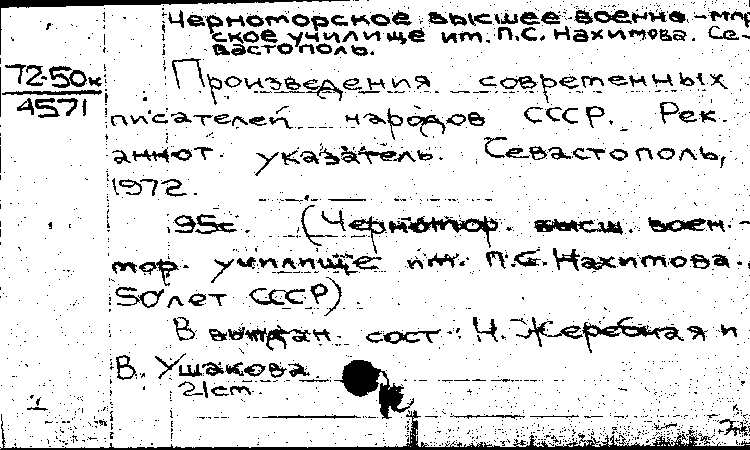 Черноморское высшее военно-мор
ское училище им. П.С. Нахимова. Се-
вастополь.
72-50к
4571
Произведения современных
писателей народов СССР. Рек.
аннот. указатель. Севастополь,
1972.
95с. (Черномор. высш. воен.-
мор. училище им. П.С. Нахимова.
50 лет СССР)
В выпдан. сост.: Н. Жеребная и
В. Ушакова
21cm
1